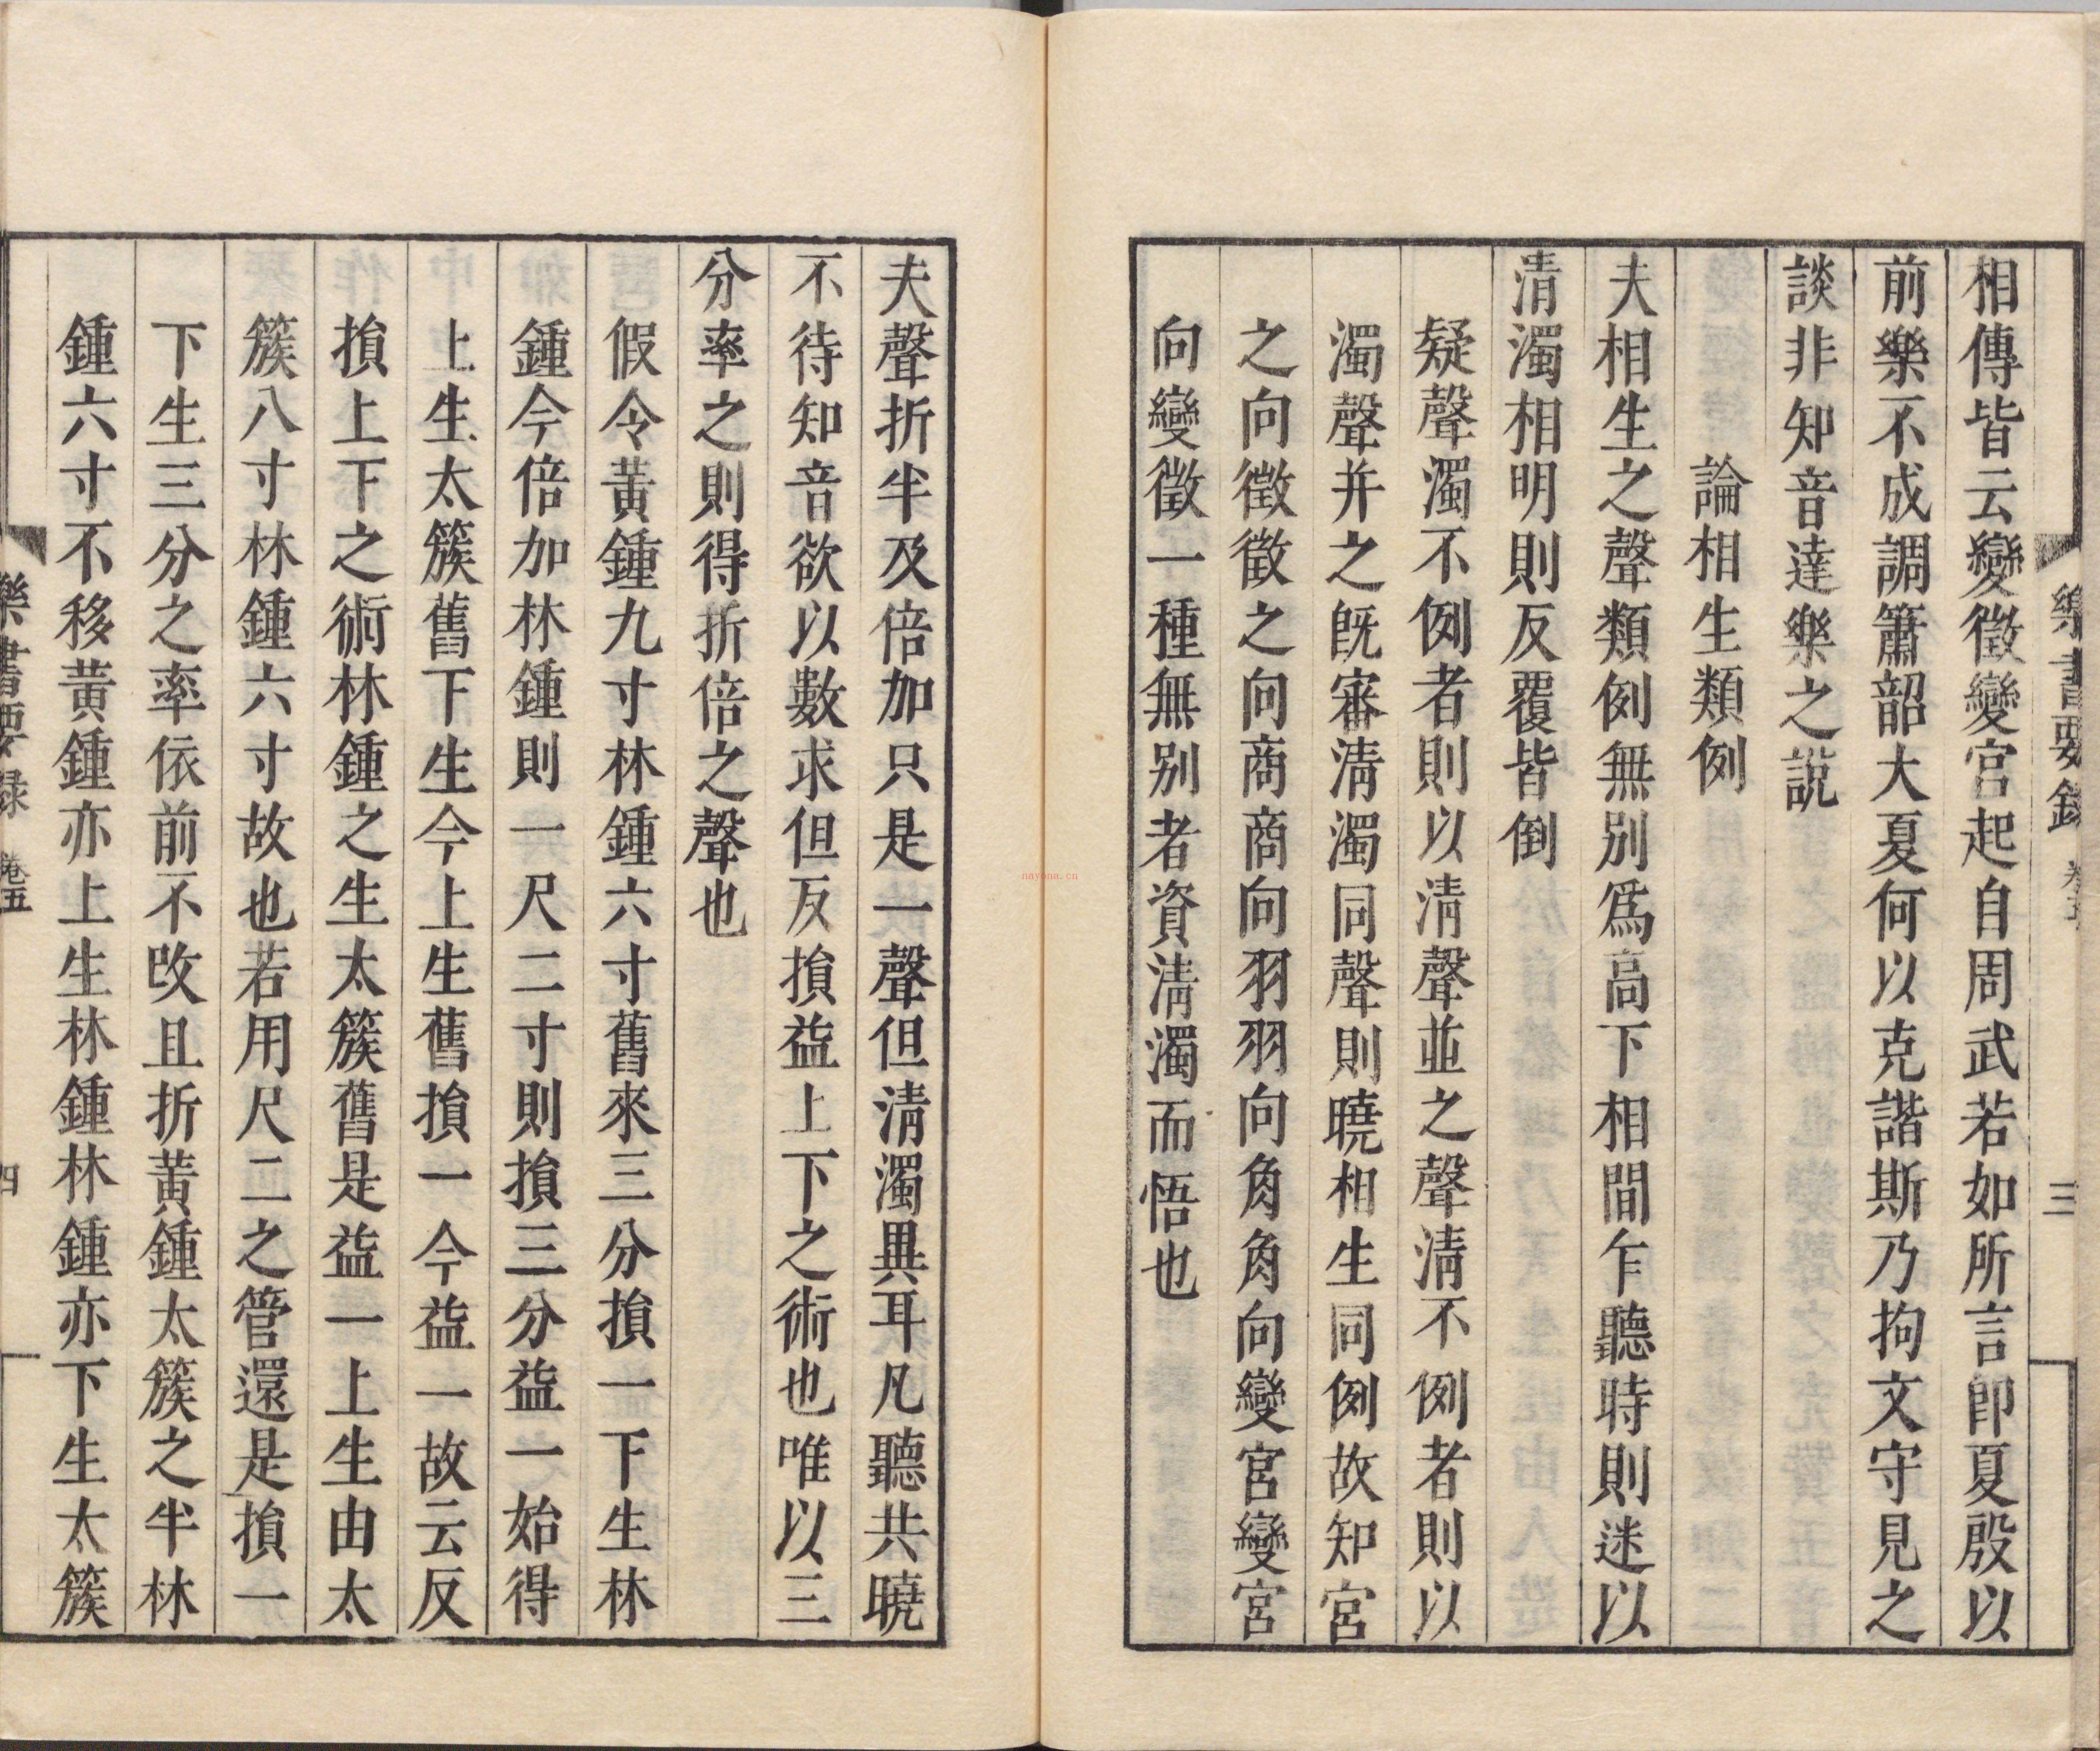 樂書要録 卷五 三
相傳皆云變徵變宮起自周武若如所言即夏殷以
前樂不成調簫韶大夏何以克諧斯乃拘文守見之
談非知音達樂之説
論相生類例
夫相生之聲類例無別爲高下相間乍聽時則迷以
清濁相明則反覆皆倒
疑聲濁不例者則以清聲並之聲清不例者則以
濁聲并之既審清濁同聲則曉相生同例故知宮
之向徵徵之向商商向羽羽向角角向變宮變宮
向變徵一種無別者資清濁而悟也
夫聲折半及倍加只是一聲但清濁異耳凡聽共曉
不待知音欲以數求但反損益上下之術也唯以三
分率之則得折倍之聲也
假令黃鍾九寸林鍾六寸舊來三分損一下生林
鍾今倍加林鍾則一尺二寸則損三分益一始得
上生太簇舊下生今上生舊損一今益一故云反
損上下之術林鍾之生太簇舊是益一上生由太
簇八寸林鍾六寸故也若用尺二之管還是損一
下生三分之率依前不改且折黃鍾太簇之半林
鍾六寸不移黃鍾亦上生林鍾林鍾亦下生太簇
樂書要録 卷五 四
nayona.cn